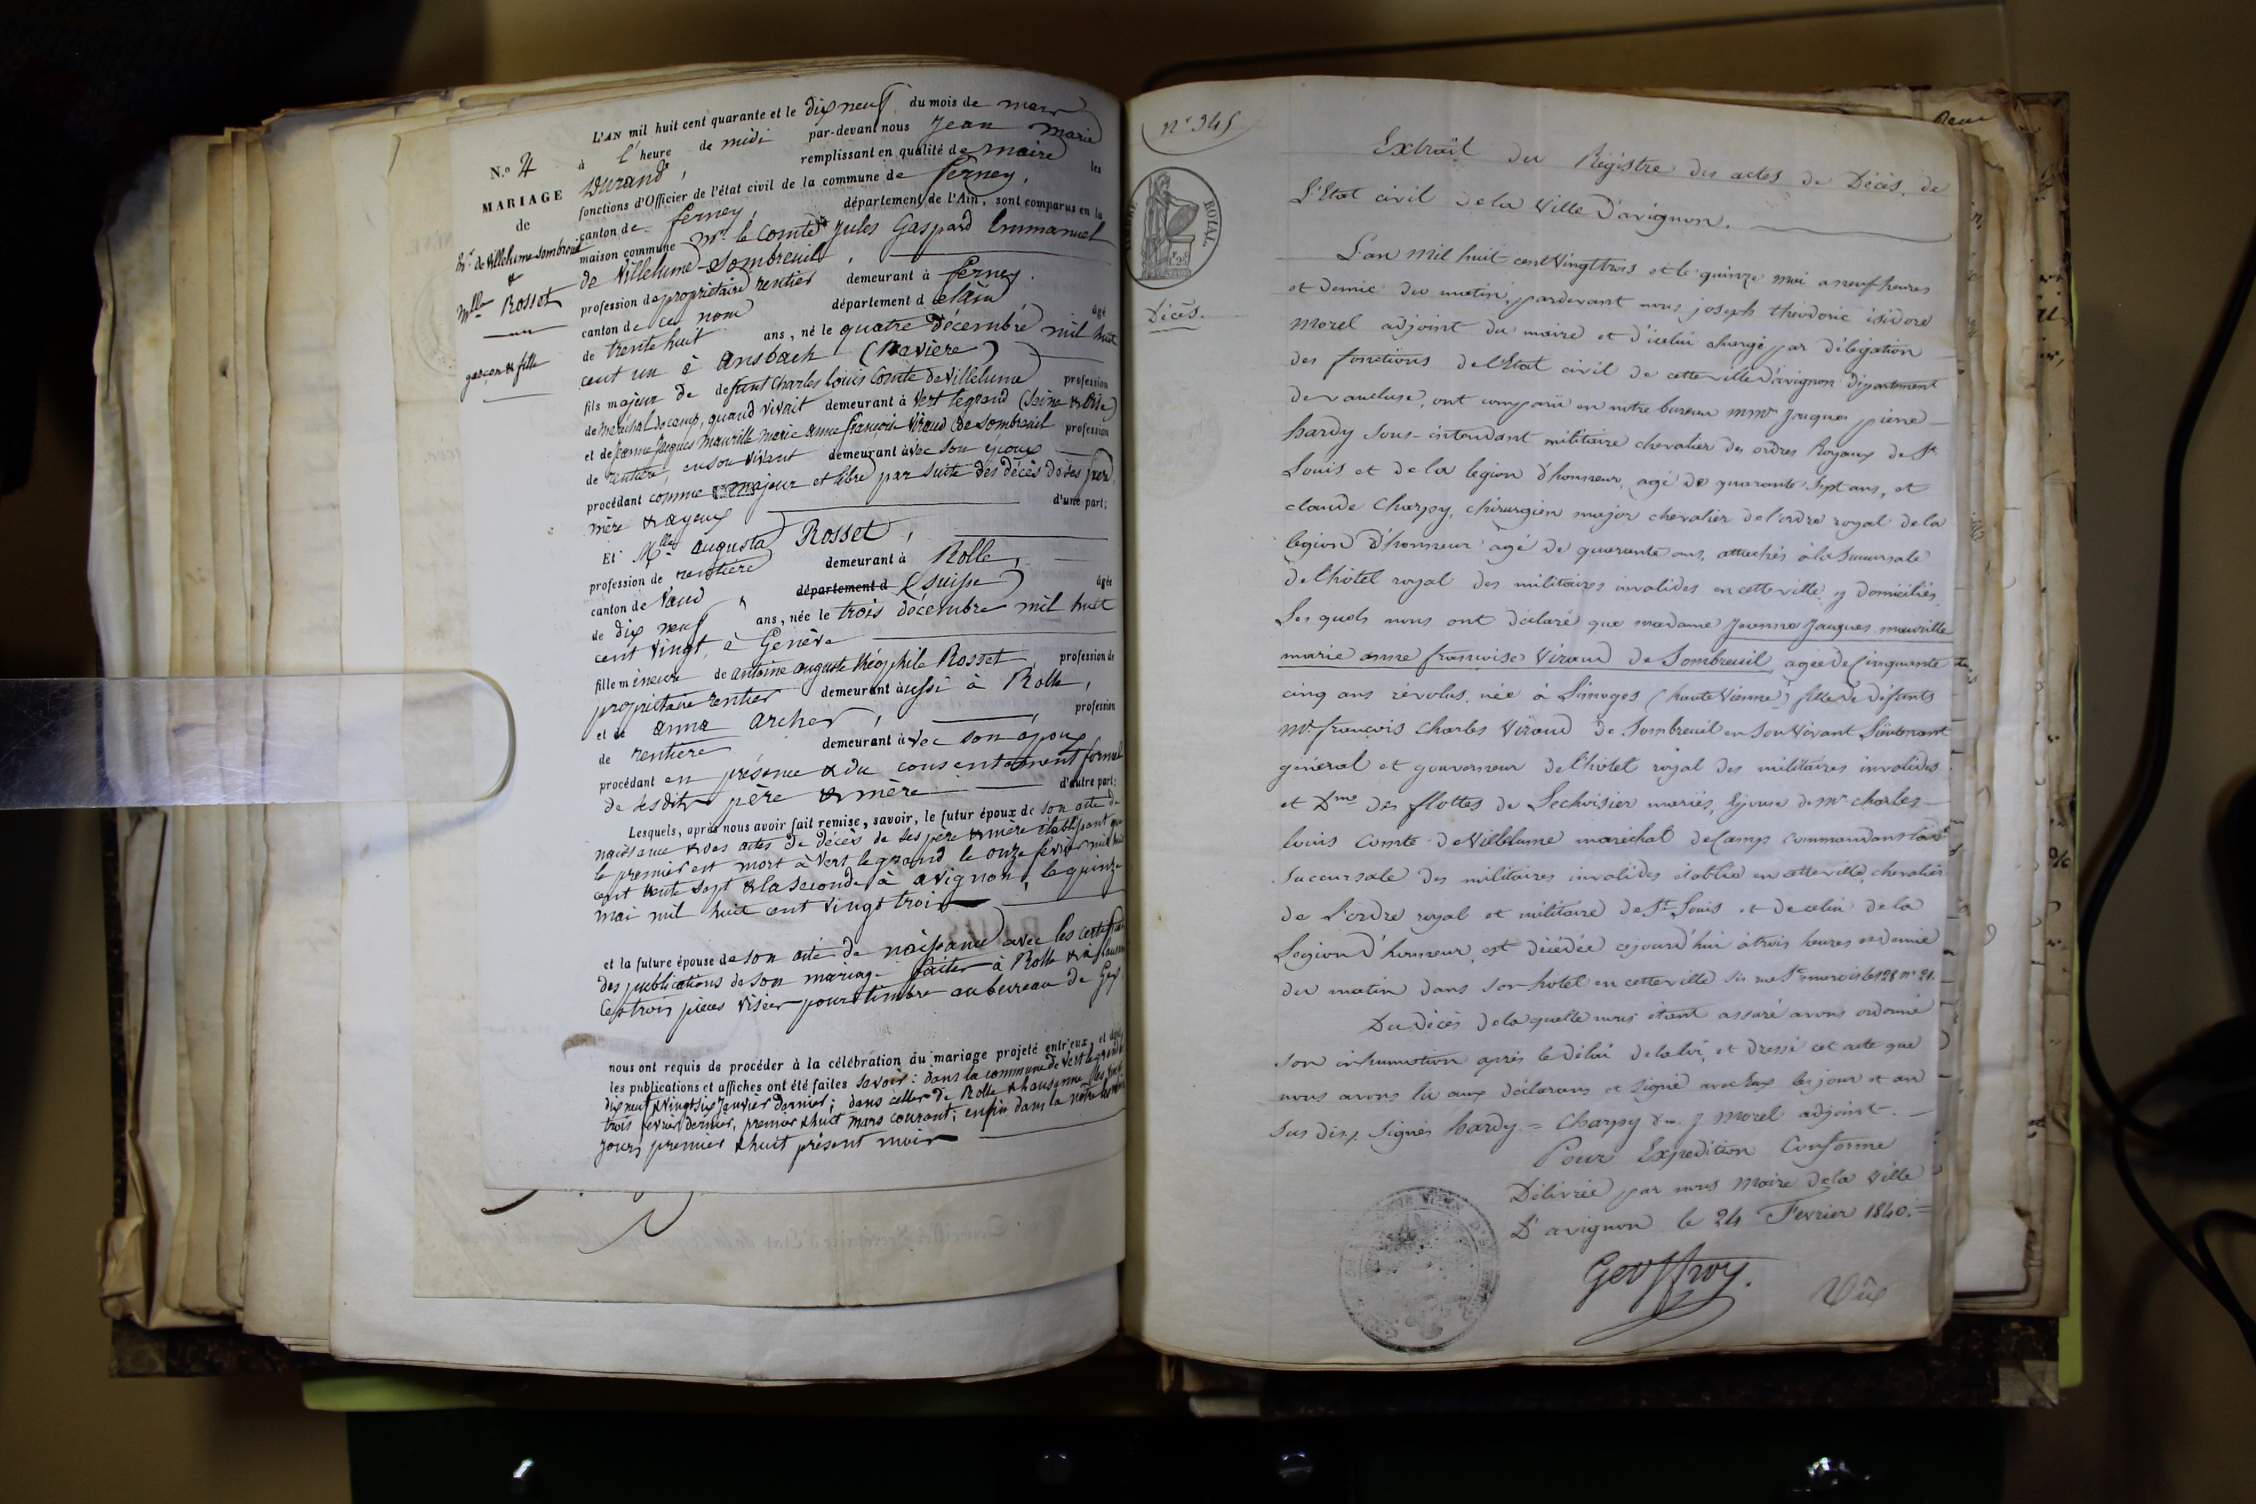 N.º 4
MARIAGE
de
Mr. de Villelume-Sombreuil
&
Mlle Rosset
garçon & fille
L'AN mil huit cent quarante et le dix neuf du mois de mars
à l'heure de midi par-devant nous Jean Marie
Durand, remplissant en qualité de maire les
fonctions d'Officier de l'état civil de la commune de Ferney,
canton de Ferney, département de l'Ain, sont comparus en la
maison commune Mr. le Comte Jules Gaspard Emmanuel
de Villelume-Sombreuil,
profession de propriétaire rentier demeurant à Ferney.
canton de ce nom département d el'ain, âgé
de trente huit ans, né le quatre décembre mil huit
cent un à Ansbach (Bavière)
fils majeur de defunt Charles Louis Comte de Villelume profession
de maréchal de camp, quand vivait demeurant à Vert legrand (Seine & Oise)
et de Jeanne Jacques Maurille Marie Anne Françoise Viraud de Sombreuil profession
de rentière, en son vivant demeurant avec son époux
procédant comme majeur et libre par suite des décès de ses père,
mère & ayeux d'une part;
Et Mlle Augusta Rosset,
profession de rentière demeurant à Rolle,
canton de Vaud département d (Suisse) âgée
de dix neuf ans, née le trois décembre mil huit
cent vingt, à Genève
fille mineure de Antoine Auguste Théophile Rosset, profession de
propriétaire rentier demeurant aussi à Rolle,
et de Anna Archer, profession
de rentière demeurant avec son époux
procédant en présence & du consentement formel
de sesdits père & mère d'autre part;
Lesquels, après nous avoir fait remise, savoir, le futur époux de son acte de
naissance & des actes de décès de ses père & mère établissant que
le premier est mort à Vert legrand le onze février mil huit
cent trente sept & la seconde à Avignon, le quinze
mai mil huit cent vingt trois
et la future épouse de son acte de naissance avec les certificats
des publications de son mariage faites à Rolle & à Lausanne
Ces trois pièces visées pour timbre au bureau de Gex.
nous ont requis de procéder à la célébration du mariage projeté entr'eux, et dont
les publications et affiches ont été faites savoir: dans la commune de Vert legrand
dix neuf & vingt six janvier dernier; dans celles de Rolle & Lausanne les
trois février dernier, premier & huit mars courant; enfin dans la notre les
jours premier & huit présent mois
Nº 345.
TIMBRE ROYAL
Décès.
Extrait du Régistre des actes de Décès, de
L'Etat civil de la Ville d'avignon.
L'an mil huit cent Vingt trois et le quinze mai a neuf heures
et demie du matin, pardevant nous joseph théodoric isidore
Morel adjoint du maire et d'icelui chargé par délégation
des fonctions de l'Etat civil de cette ville d'avignon département
de vaucluse, ont comparu en notre bureau mmrs Jacques pierre
hardy Sous-intendant militaire chevalier des ordres Royaux de St
Louis et de la legion d'honneur, agé de quarante Sept ans, et
claude Charpy, chirurgien major chevalier de l'ordre royal de la
legion d'honneur agé de quarante ans, attachés à la Succursale
de l'hôtel royal des militaires invalides en cette ville y domiciliés,
Les quels nous ont déclaré que madame Jeanne Jacques maurille
marie anne françoise Viraud de Sombreuil, agée de Cinquante
cinq ans révolus, née à Limoges (haute Vienne) fille de défunts
Mr françois Charles Viraud de Sombreuil en son Vivant Lieutenant
général et gouverneur de l'hôtel royal des militaires invalides
et Dme des flottes de Lechoisier mariés, Epouse de Mr charles
louis Comte de Villelume maréchal de Camp commandant la
Succursale des militaires invalides établie en cette ville, chevalier
de L'ordre royal et militaire de St Louis et de celui de la
Legion d'honneur, est décédée cejourd'hui à trois heures et demie
du matin dans son hôtel en cette ville
Du décès de laquelle nous étant assuré avons ordonné
son inhumation après le délai de la loi, et dressé cet acte que
nous avons lu aux déclarans et signé avec Eux les jour et an
sus dits. Signés hardy = Charpy J. Morel adjoint.
Pour Expédition Conforme
Délivrée par nous Maire de la Ville
D'avignon le 24 Fevrier 1840.
Geoffroy.
Vu